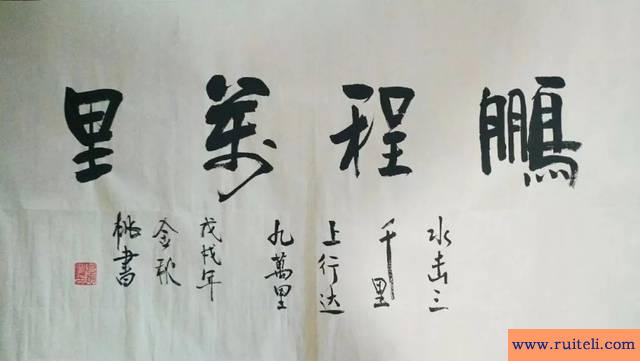 鵬程萬里
水击三
千里
上行达
九萬里
戊戌年
金秋
桃書
www.ruiteli.com